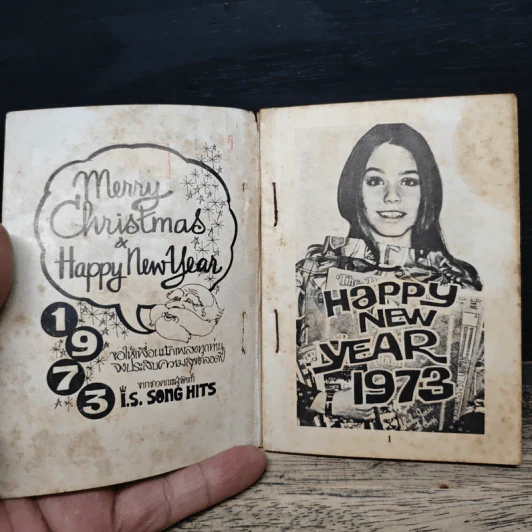 Merry
Christmas
&
Happy New Year
1973
ขอให้เพื่อนนักเพลงทุกท่าน
จงประสบความสุขตลอดปี
จากคณะผู้จัดทำ
I.S. SONG HITS
HAPPY
NEW
YEAR
1973
1